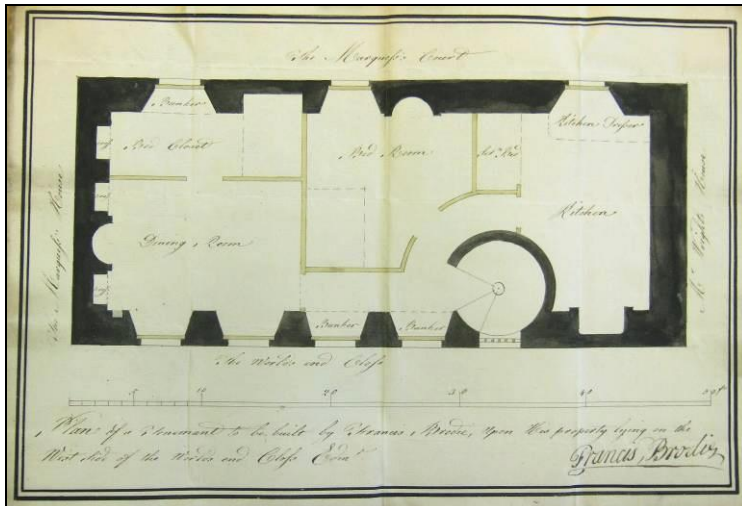 The Marquess Court
Bunker
Bed Closet
Bed Room
Ser.ts Bed
Kitchen Dresser
Kitchen
Dining Room
The Marquess House
Mr. Wrights House
Bunker
Bunker
The Worlds end Closs
10
20
30
40
50
Plan of a Tenement to be built by Francis Brodie, upon His property lying on the
West side of the Worlds end Closs Edinr
Francis Brodie